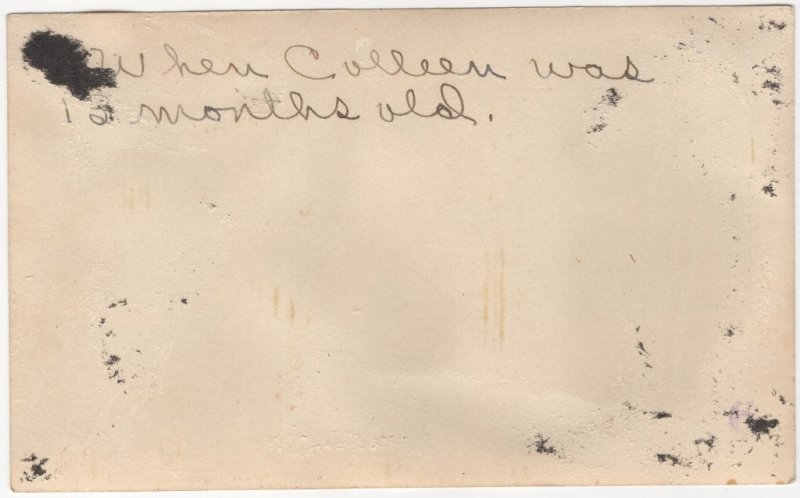 When Colleen was
13 months old.